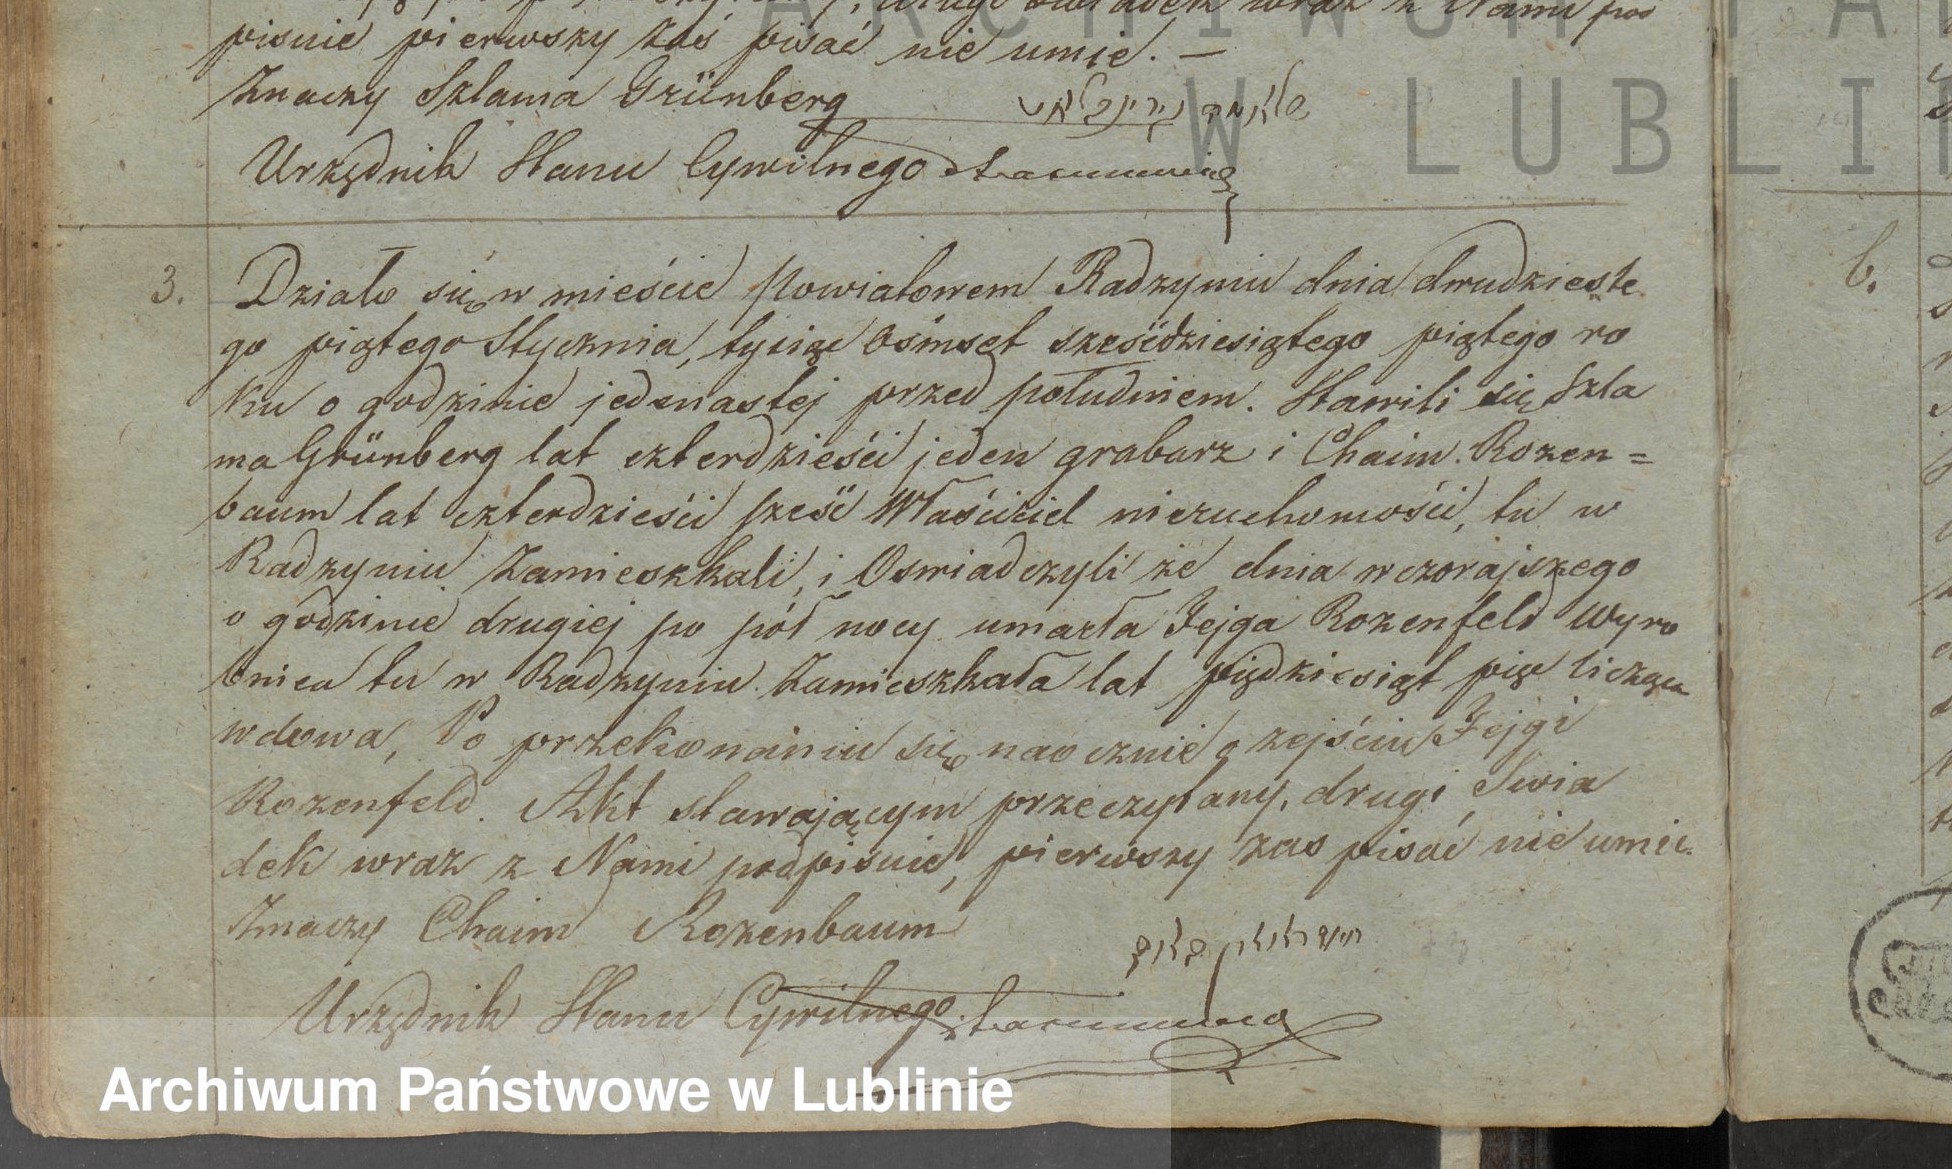 drugi świadek wraz z Nami pod
pisuie pierwszy zaś pisać nie umie. —
Znaczy Szlama Grünberg
Urzędnik Stanu Cywilnego
3. Działo się w mieście powiatowem Radzyniu dnia dwudzieste
go piątego Stycznia, tysiąc ośmset sześćdziesiątego piątego ro
ku o godzinie jedenastej przed południem. Stawili się Szla
ma Grünberg lat czterdzieści jeden grabarz i Chaim Rozen=
baum lat czterdzieści sześć Właściciel nieruchomości, tu w
Radzyniu Zamieszkali, i Oswiadczyli że dnia wczorajszego
o godzinie drugiej po pół nocy umarła Fejga Rozenfeld Wyro
bnica tu w Radzyniu Zamieszkała lat piędziesiąt pięc licząca
wdowa, Po przekonaniu się naocznie o zejściu Fejgi
Rozenfeld. Akt stawającym przeczytany, drugi Swia
dek wraz z Nami podpisuie, pierwszy zas pisać nie umie.
Znaczy Chaim Rozenbaum
Urzędnik Stanu Cywilnego
6.
ARCHIWUM PA
W LUBLI
Archiwum Państwowe w Lublinie